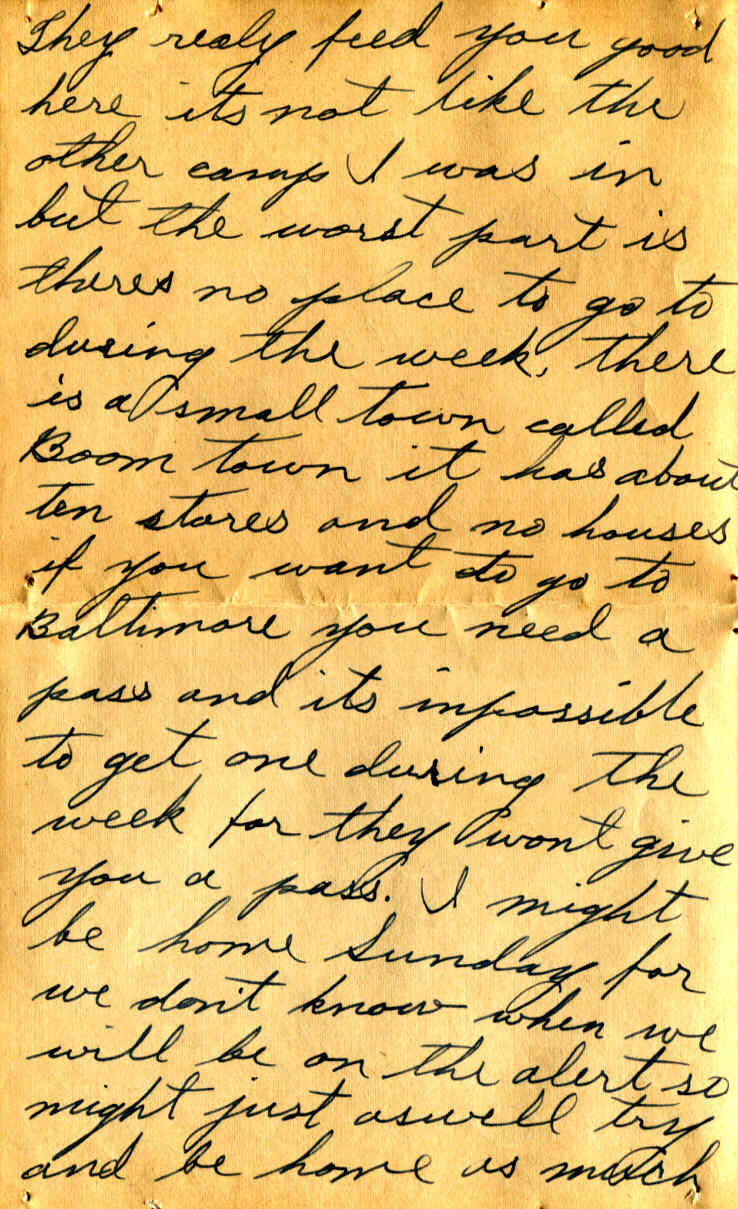 They realy feed you good
here its not like the
other camp I was in
but the worst part is
theres no place to go to
during the week, there
is a small town called
Boom town it has about
ten stores and no houses
if you want to go to
Baltimore you need a
pass and its impossible
to get one during the
week for they wont give
you a pass. I might
be home Sunday for
we don't know when we
will be on the alert so
might just aswell try
and be home as much